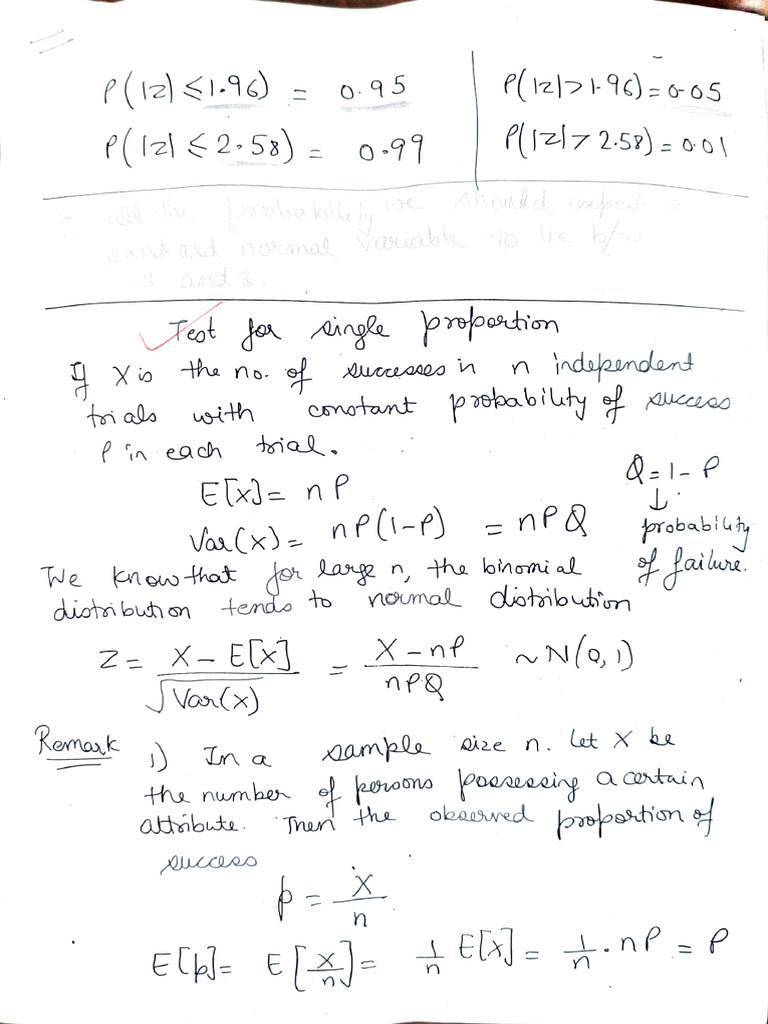 P(|z| ≤ 1.96) = 0.95
P(|z| ≤ 2.58) = 0.99
P(|z| > 1.96) = 0.05
P(|z| > 2.58) = 0.01
the probability we should expect a
standard normal variable to lie b/w
-3 and 3.
Test for single proportion
If X is the no. of successes in n independent
trials with constant probability of success
P in each trial.
E[X] = nP
Var(X) = nP(1-P) = nPQ
Q = 1 - P
↓
probability
of failure.
We know that for large n, the binomial
distribution tends to normal distribution
Z = (X - E[X])/√Var(X) = (X - nP)/nPQ ~ N(0,1)
Remark 1) In a sample size n. let X be
the number of persons possessing a certain
attribute. Then the observed proportion of
success
p = X/n
E[p] = E[X/n] = 1/n E[X] = 1/n . nP = P